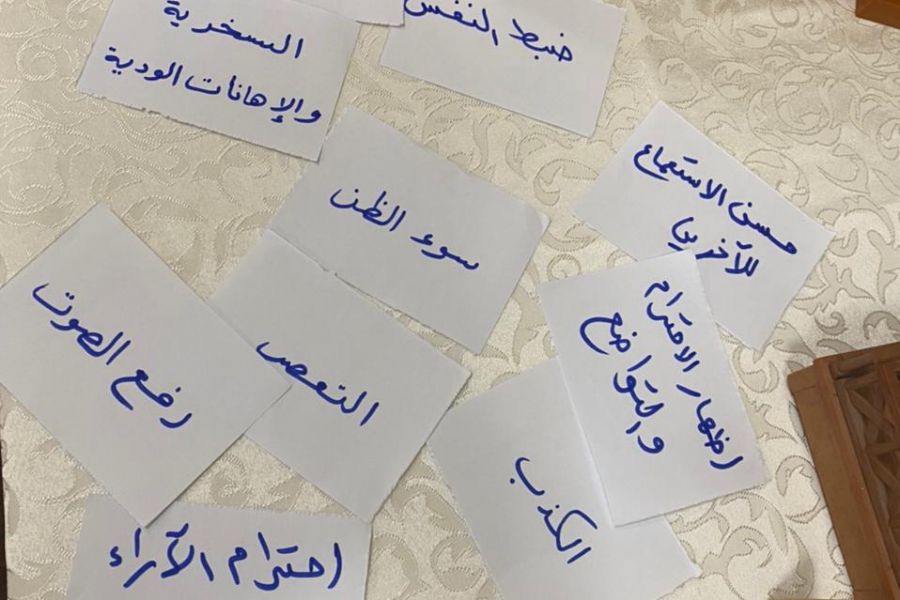 السخرية
والإهانات الودية
ضبط النفس
حسن الاستماع
للآخرين
سوء الظن
رفع الصوت
التعصب
اظهار الاحترام
والتواضع
الكذب
احترام الآراء